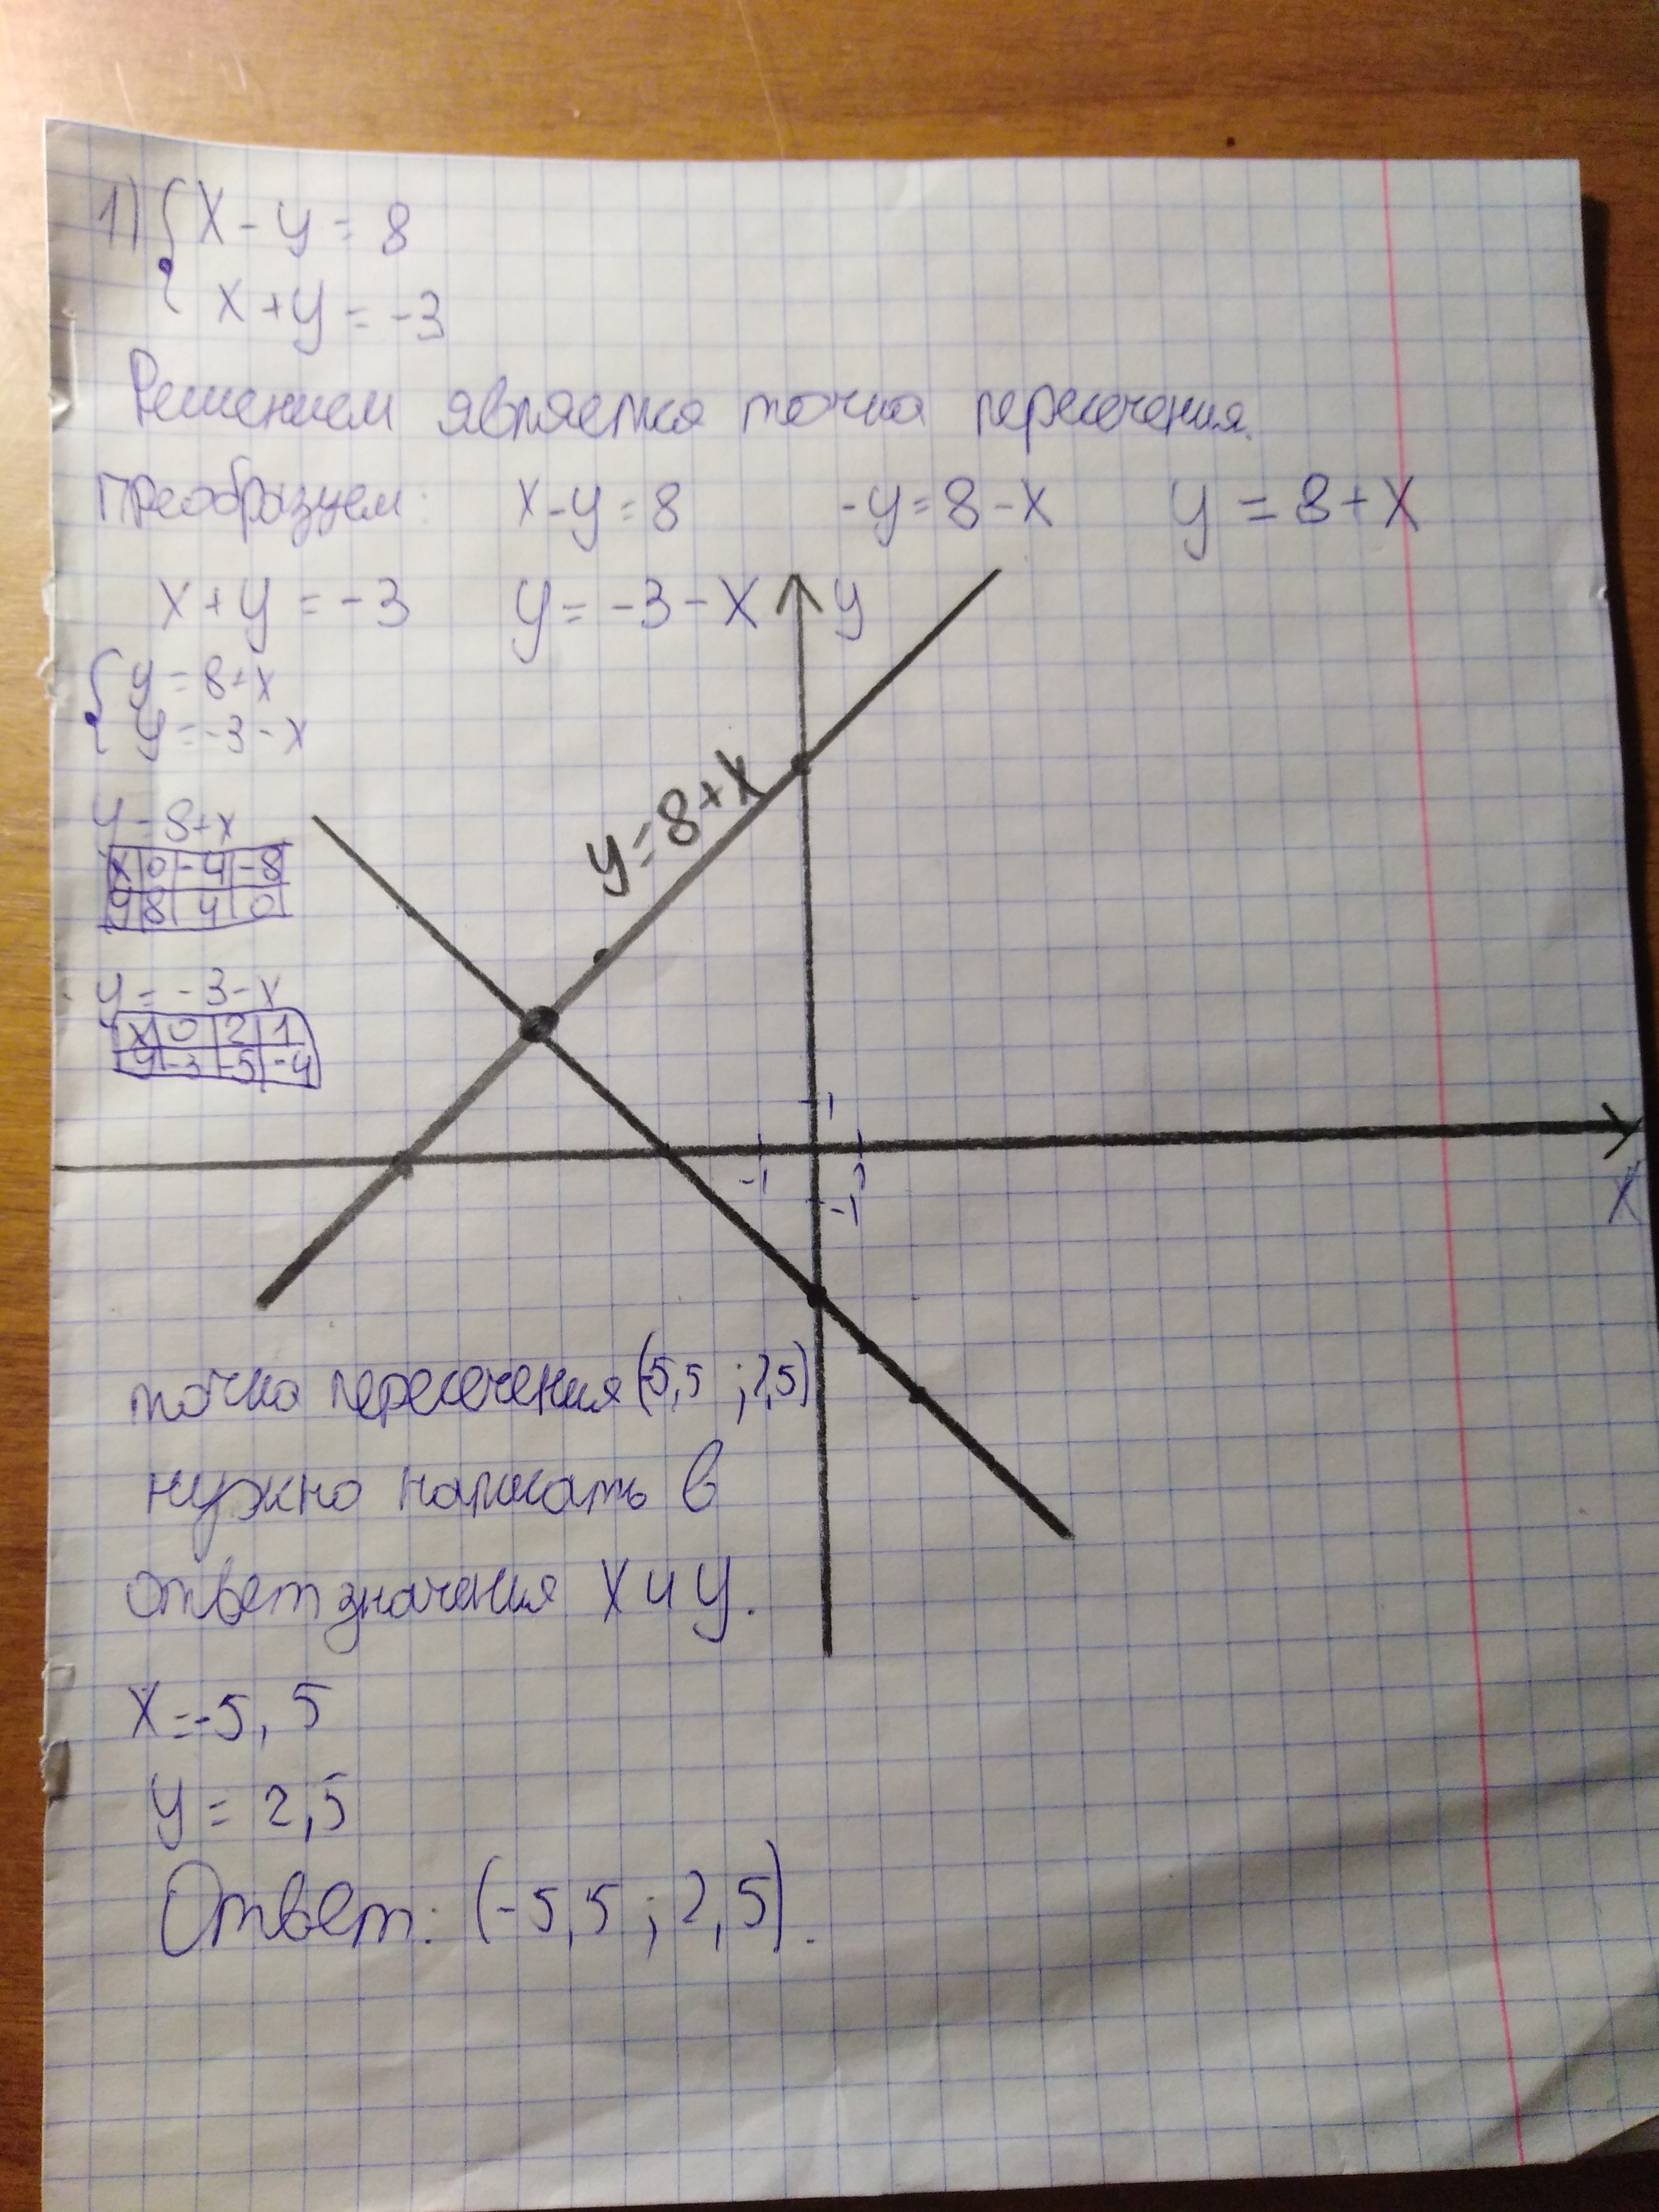 1) { x - y = 8
x + y = -3
Решением является точка пересечения.
Преобразуем: x - y = 8 -y = 8 - x y = 8 + x
x + y = -3 y = -3 - x
y
{ y = 8 + x
y = -3 - x
y = 8 + x
y = 8 + x
x 0 -4 -8
y 8 4 0
y = -3 - x
x 0 2 1
y -3 -5 -4
1
-1 1
-1
x
точка пересечения (-5,5 ; 2,5)
нужно написать в
ответ значения x и y.
x = -5,5
y = 2,5
Ответ: (-5,5 ; 2,5).